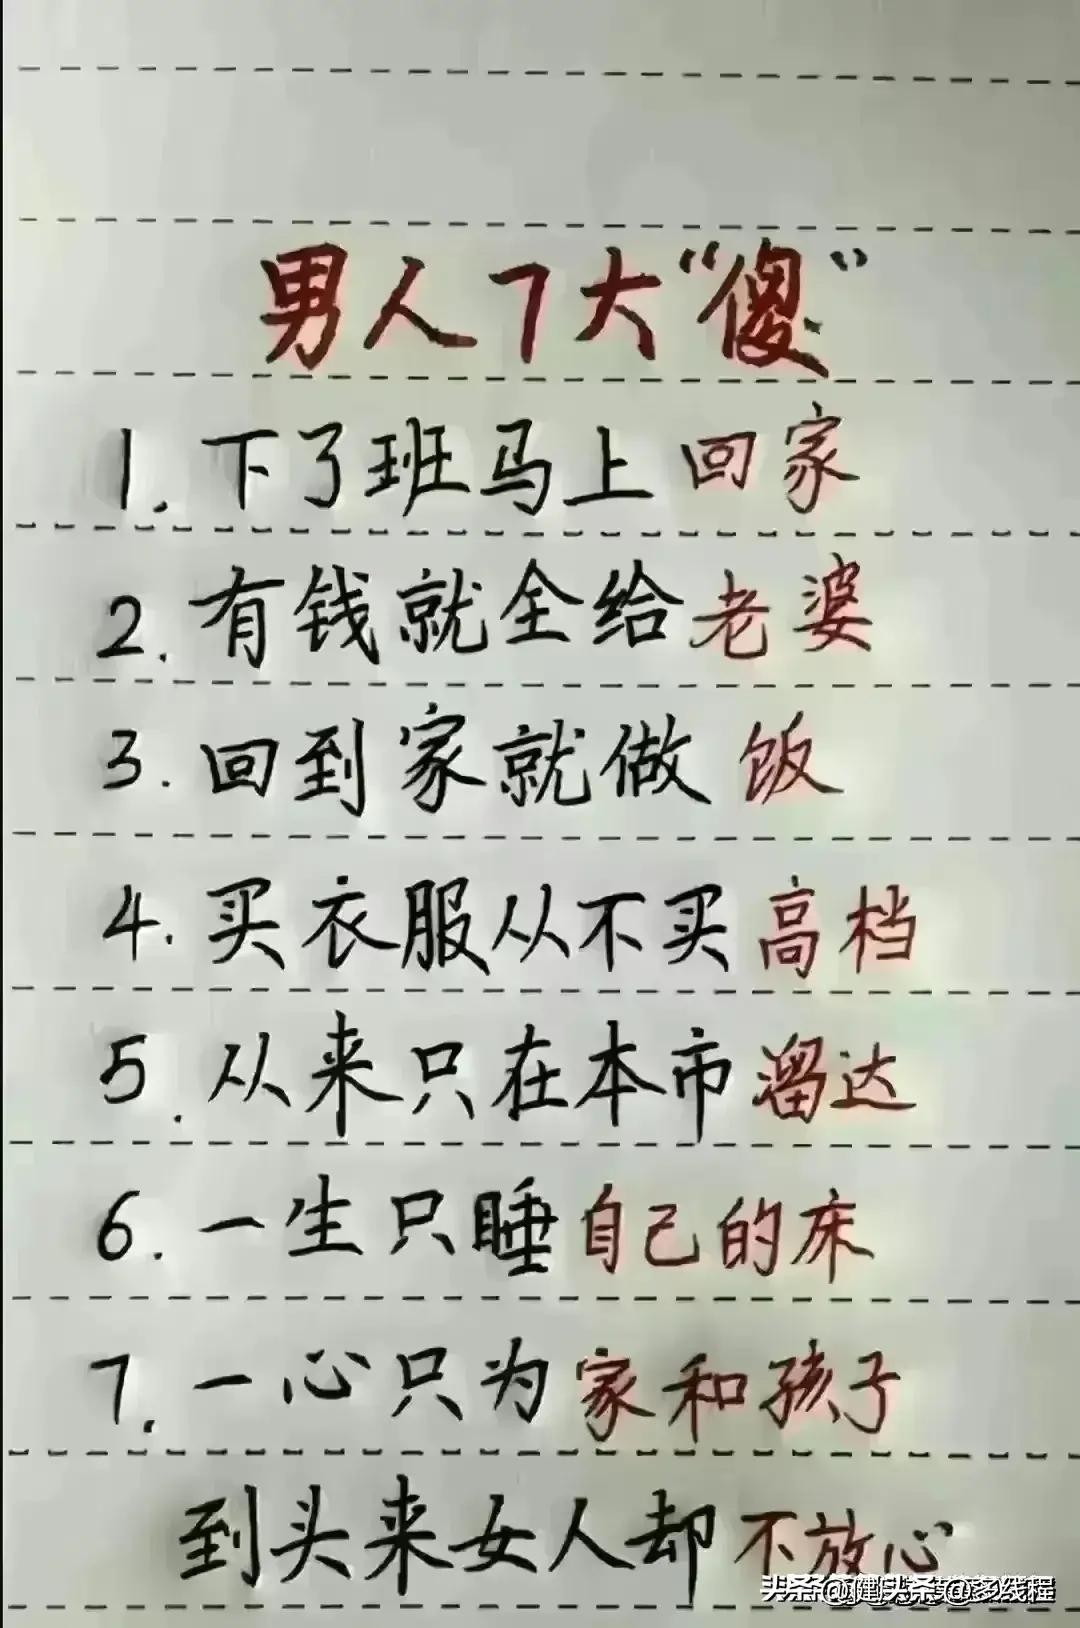 男人7大“傻”
1. 下了班马上回家
2. 有钱就全给老婆
3. 回到家就做饭
4. 买衣服从不买高档
5. 从来只在本市溜达
6. 一生只睡自己的床
7. 一心只为家和孩子
到头来女人却不放心
头条@多线程